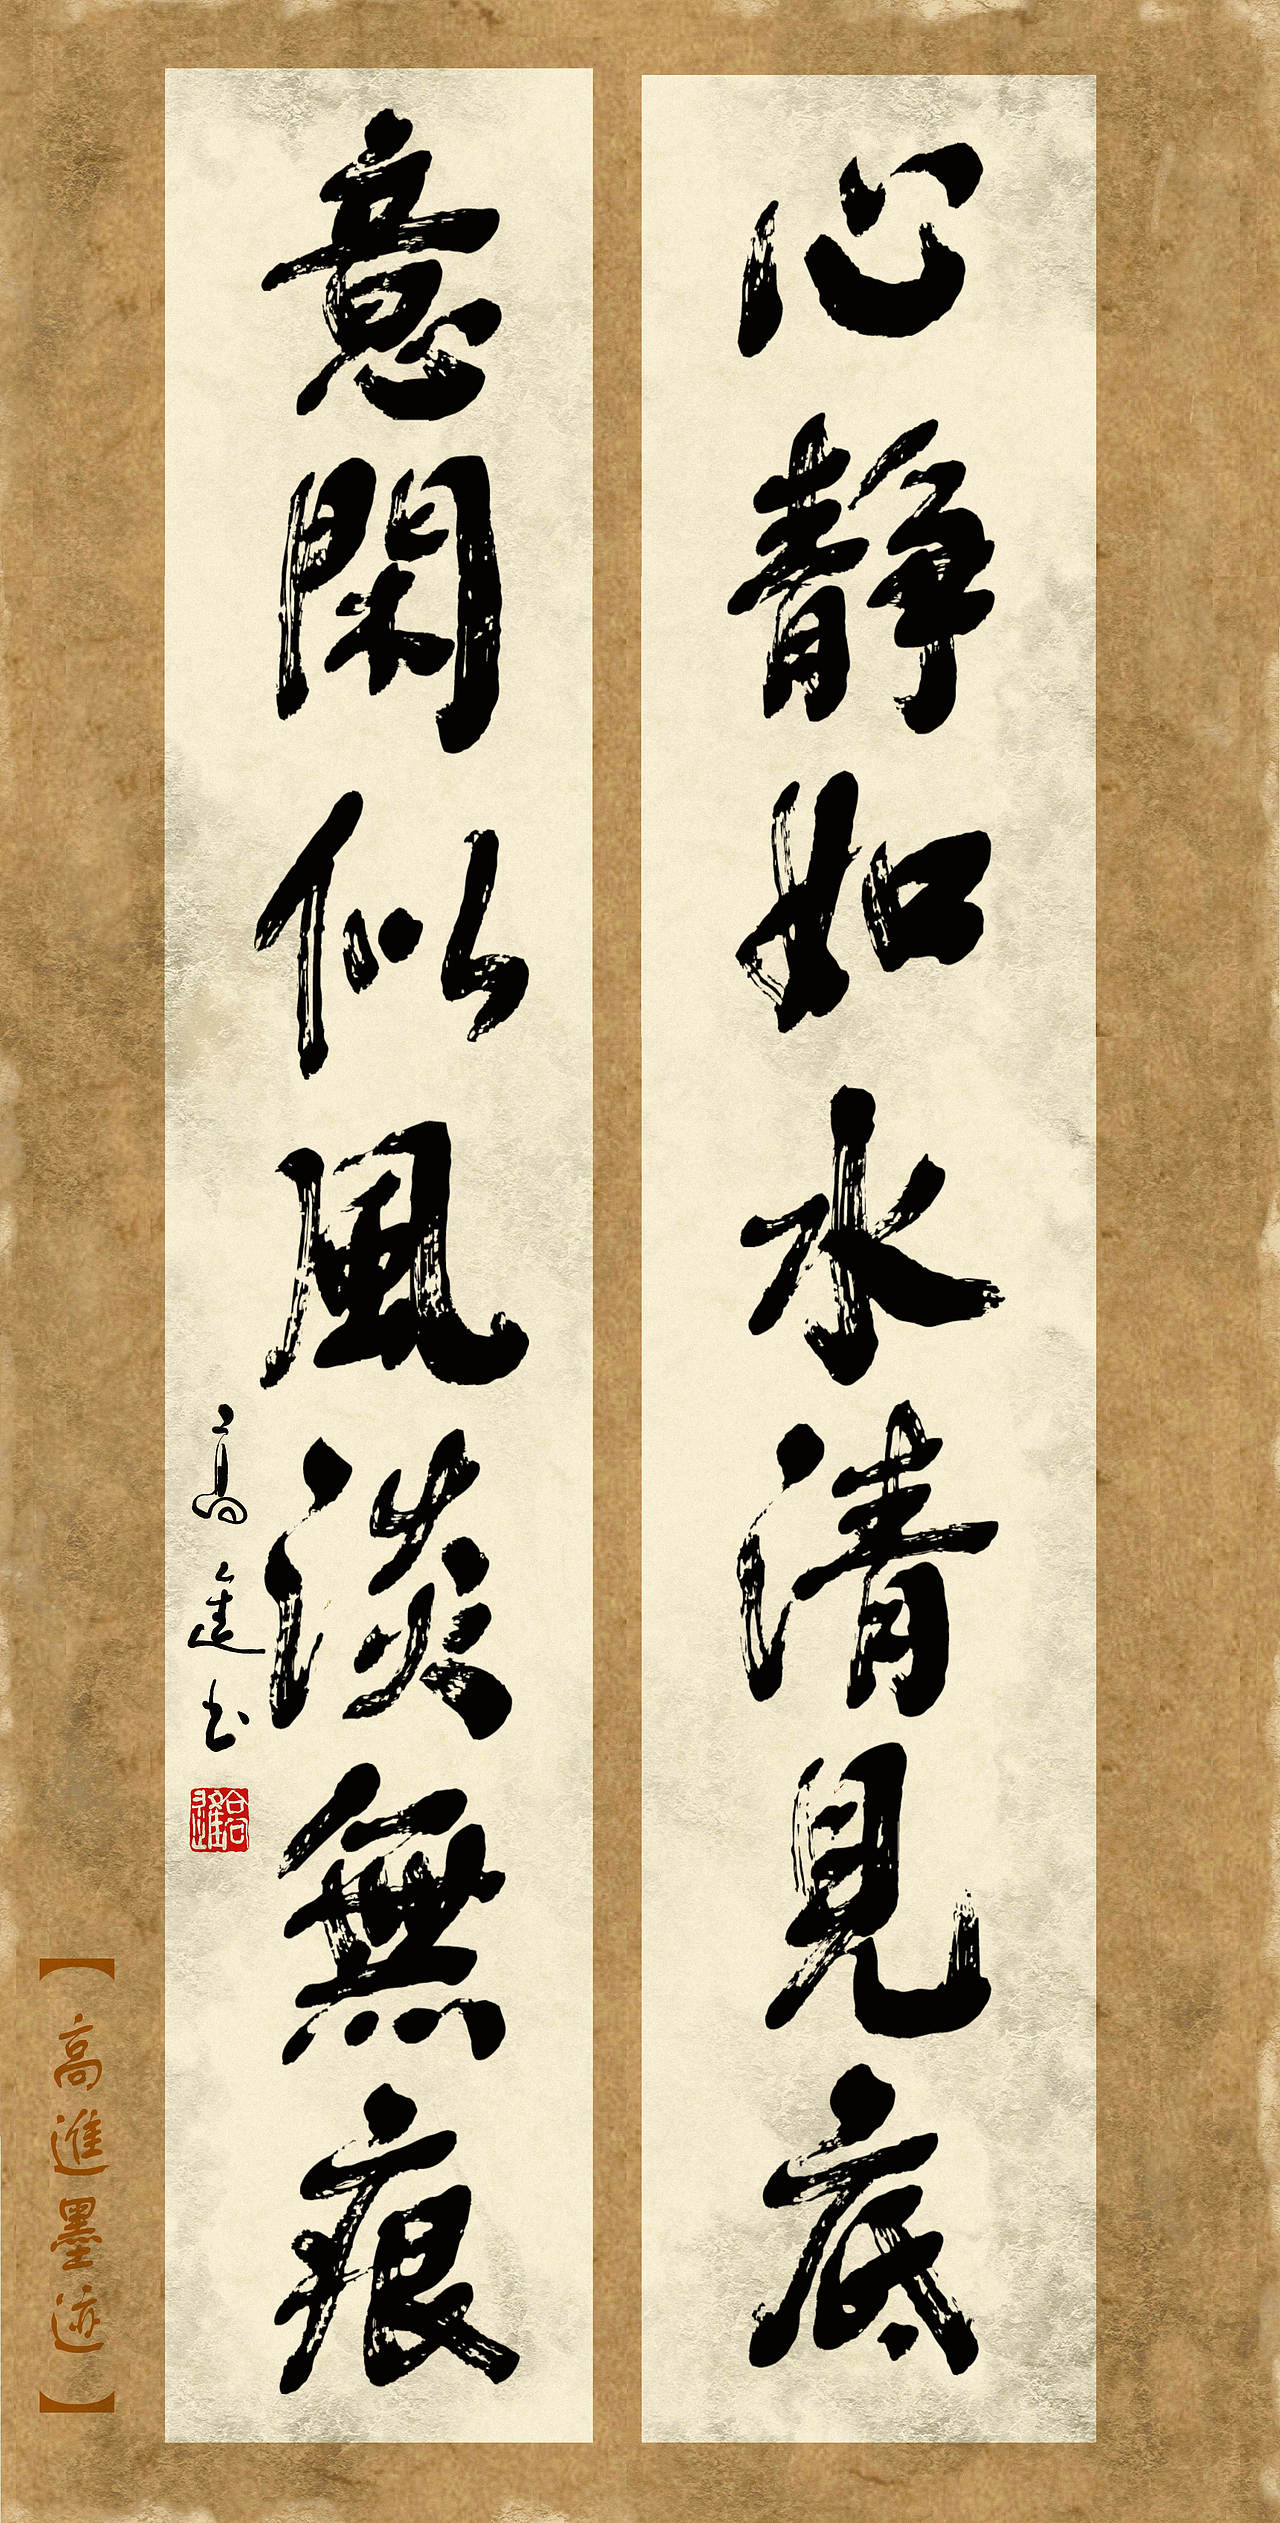 心靜如水清見底
意閑似風淡無痕
高進书
【高進墨迹】